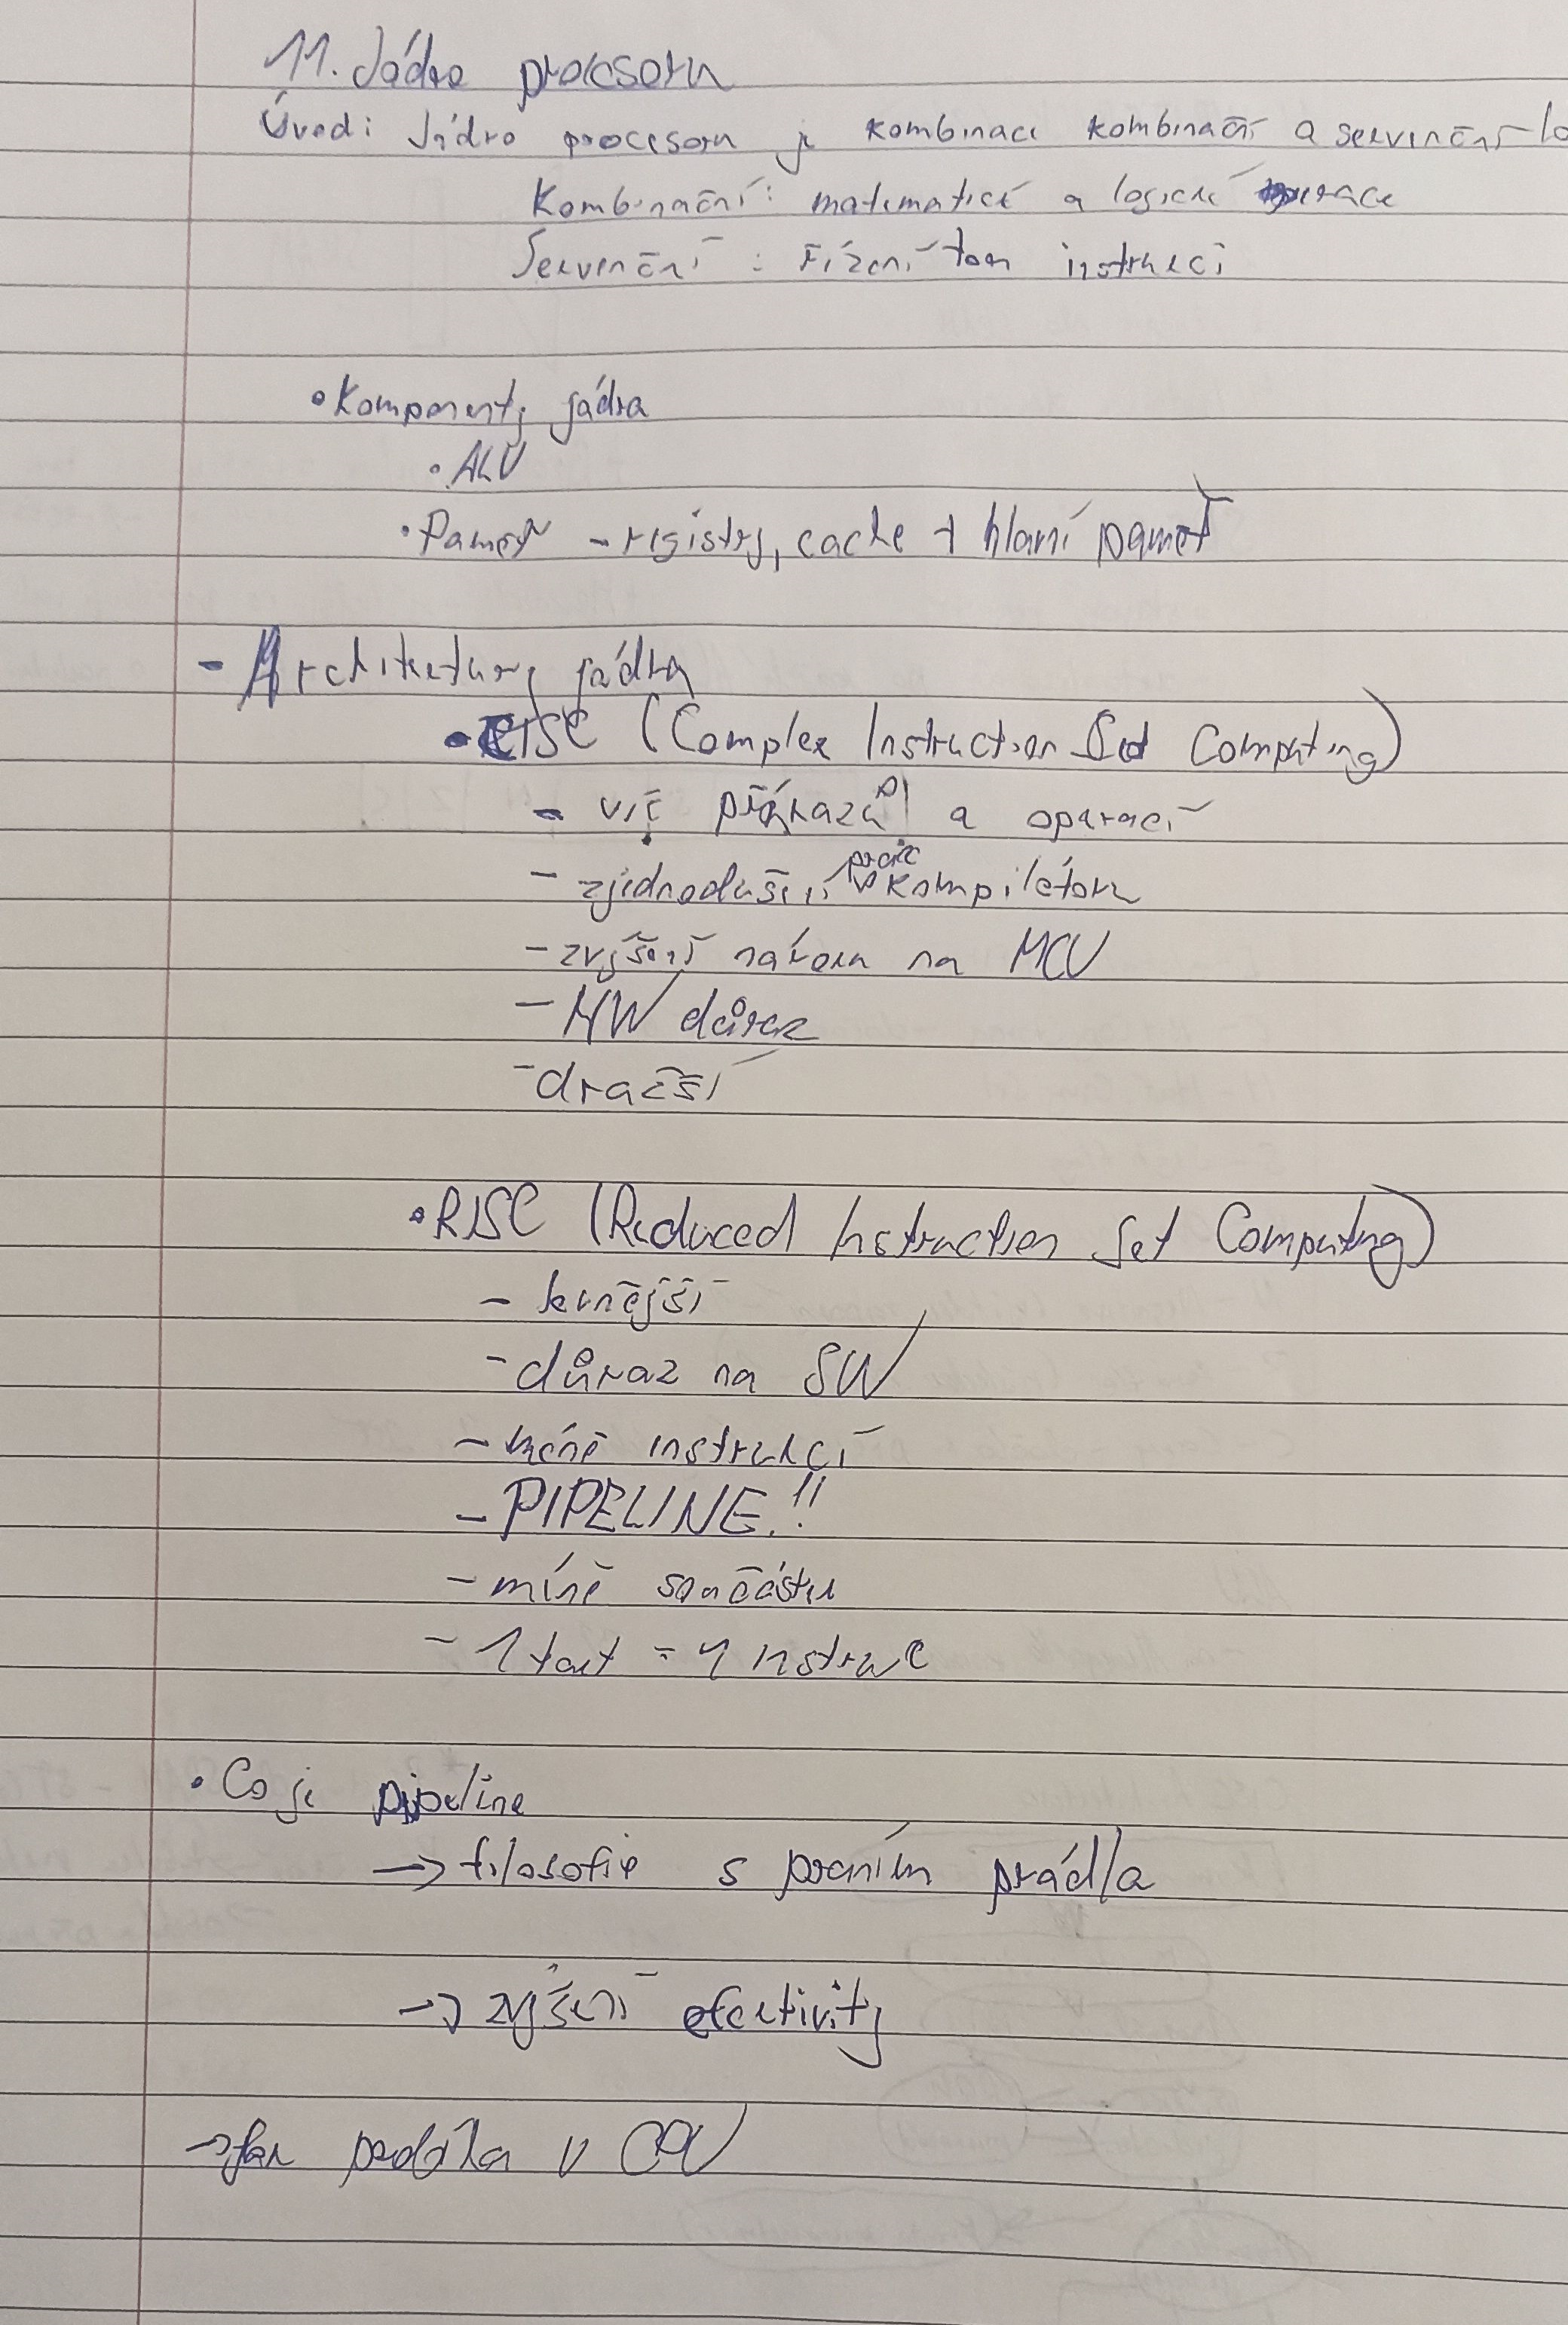 11. Jádro procsoru
Úvod: Jádro procesoru je kombinace kombinační a sekvenční lo
Kombinační: matematické a logické operace
Sekvenční : řízení toku instrukcí
• Komponenty jádra
• ALU
• Paměť - registry, cache + hlavní paměť
- Architektury jádra
• CISC (Complex Instruction Set Computing)
- víc příkazů a operací
- zjednodušení práce kompilátoru
- zvýšení nároku na MCU
- HW důraz
- dražší
• RISC (Reduced Instruction Set Computing)
- levnější
- důraz na SW
- méně instrukcí
- PIPELINE!!
- míně součástek
- 1 takt = 1 instrukce
• Co je pipeline
→ filosofie s praním prádla
→ zvýšení efektivity
→ Jak probíhá v CPU